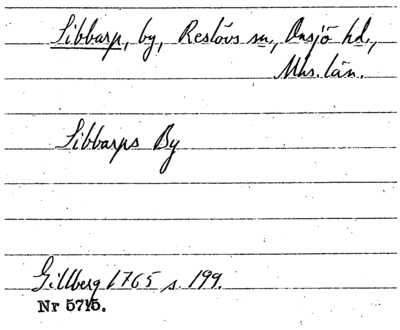 Sibbarp, by, Reslövs sn., Onsjö hd.,
Mhs. län.
Sibbarps By
Gillberg 1765 s. 199.
Nr 5715.